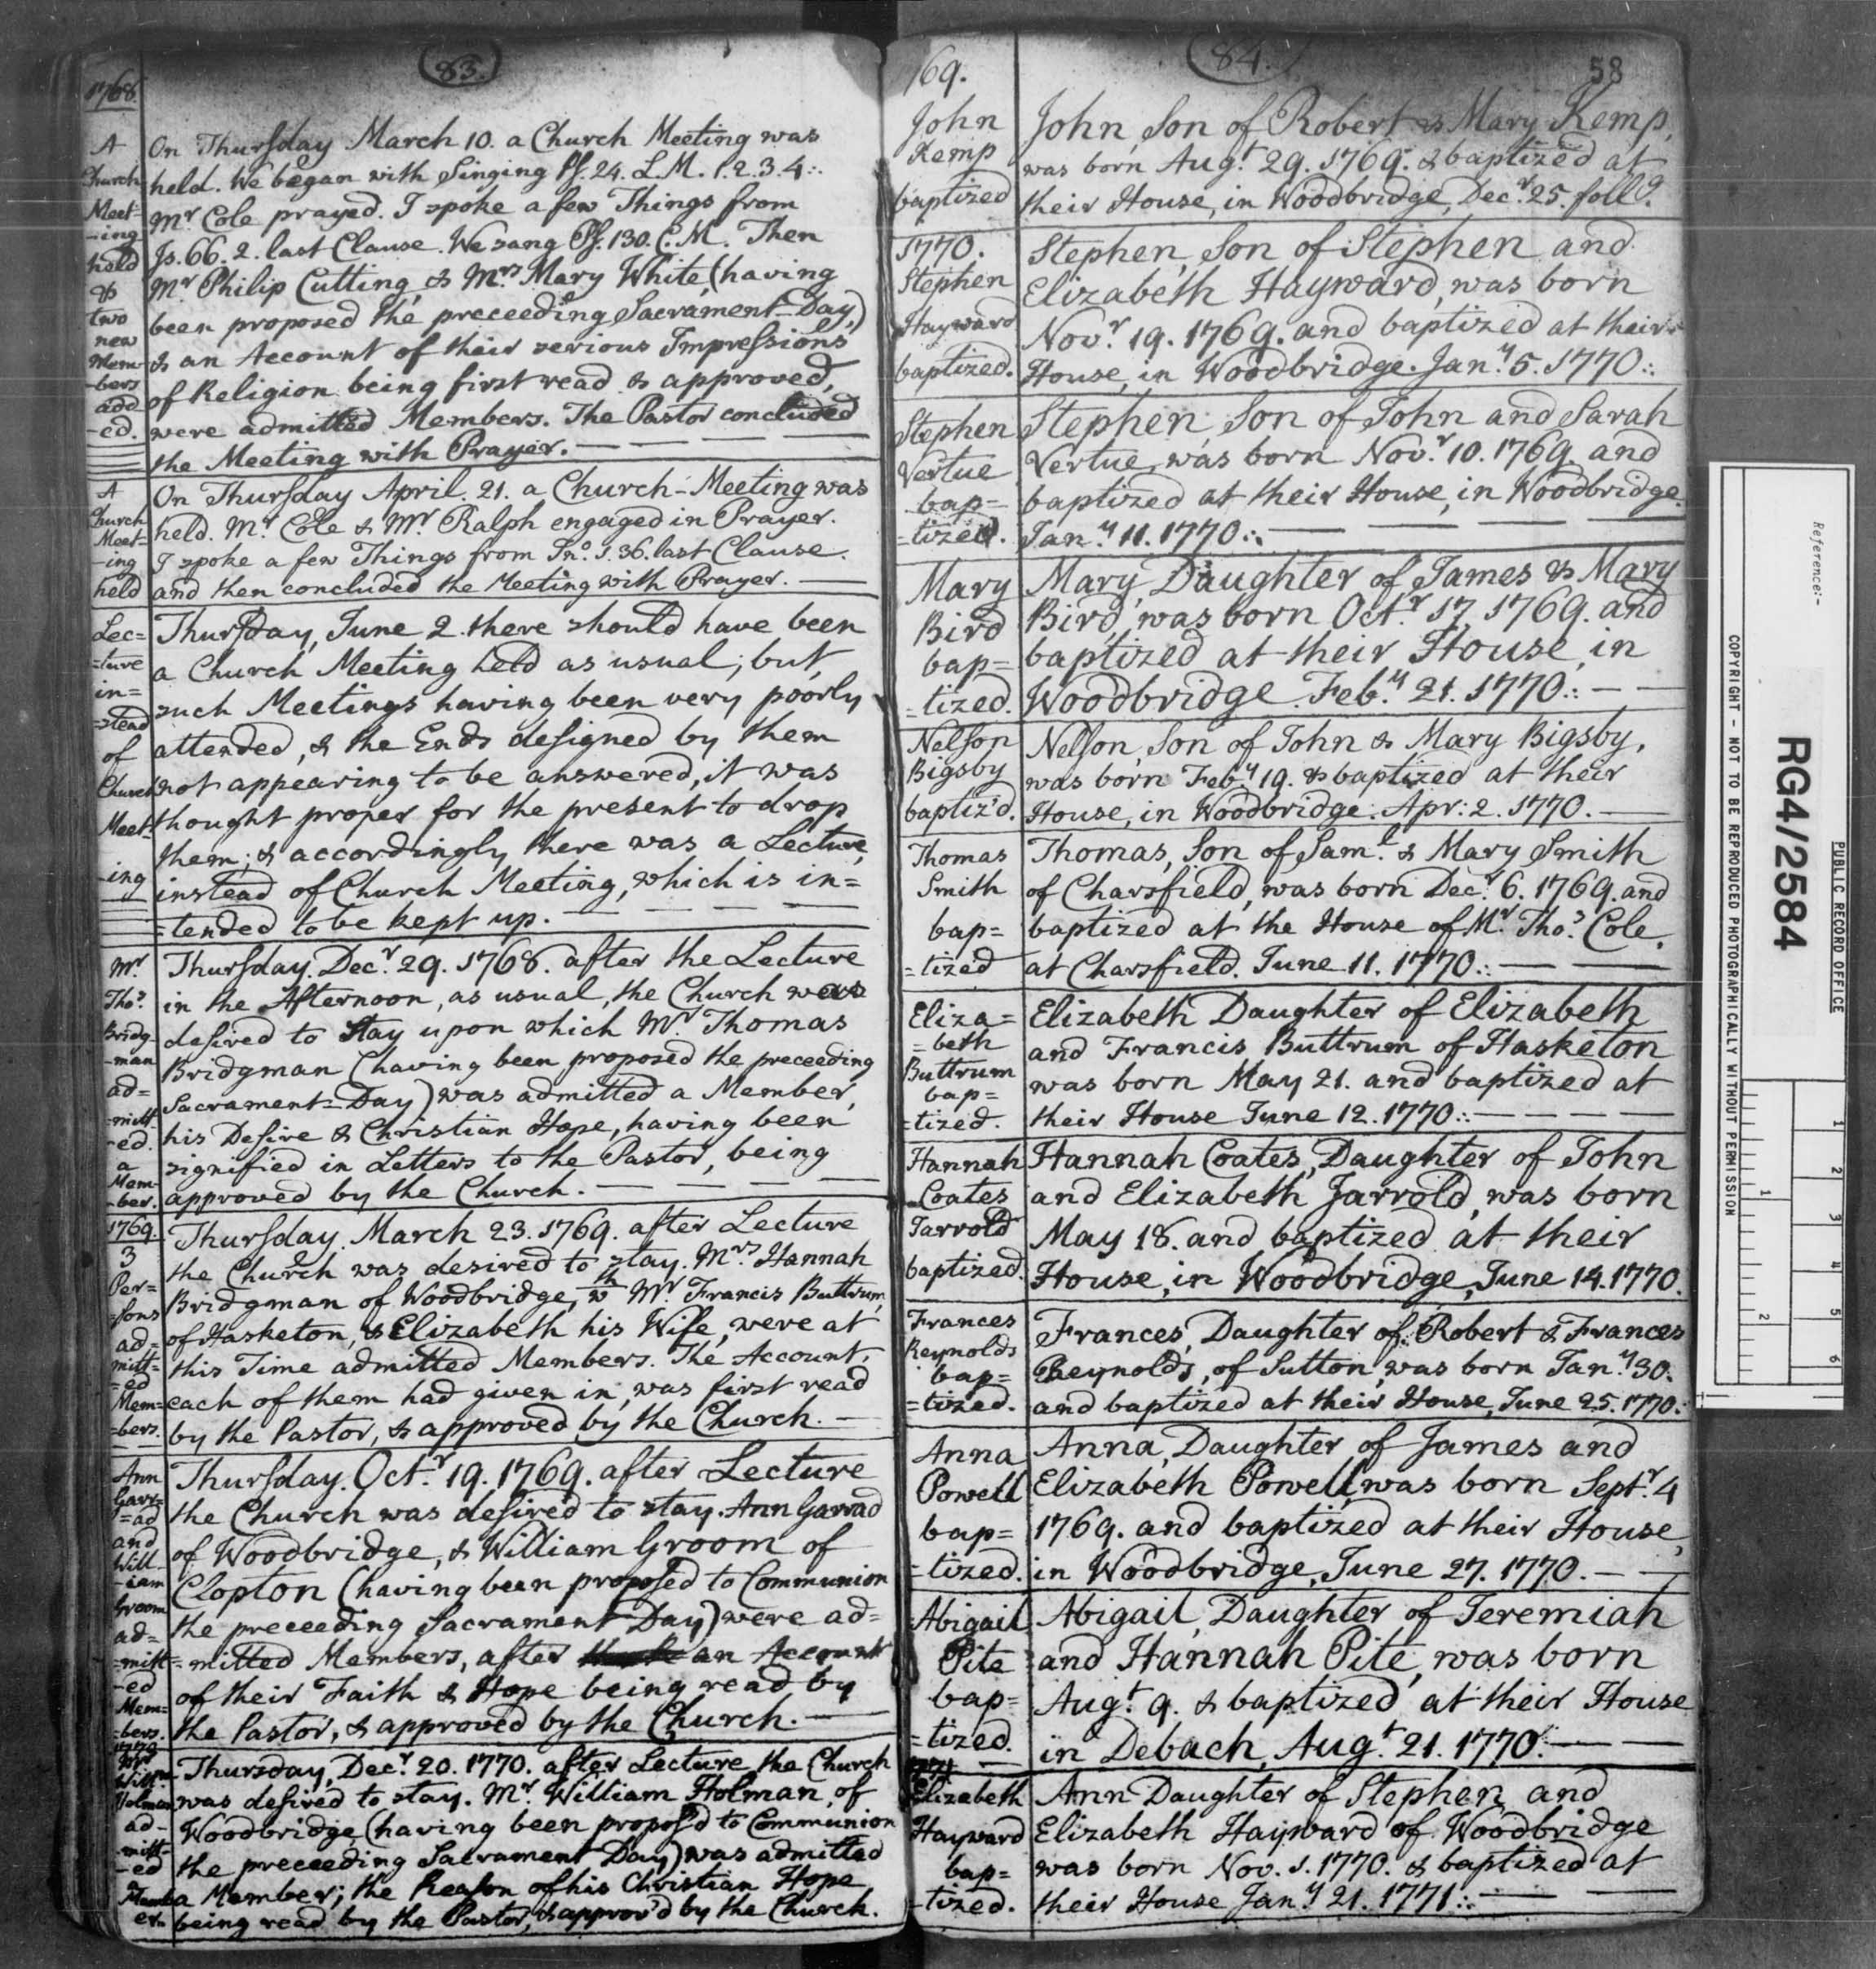 83.
1768.
A
Church
Meet-
-ing
held
&
two
new
Mem-
-bers
add
-ed.
On Thursday March 10. a Church Meeting was
held. We began with Singing Ps. 24. L.M. 1.2.3.4:.
Mr Cole prayed. I spoke a few Things from
Is. 66. 2. last Clause. We sang Ps. 130. C.M. Then
Mr Philip Cutting, & Mrs Mary White, (having
been proposed the preceeding Sacrament-Day,)
& an Account of their serious Impressions
of Religion being first read & approved,
were admitted Members. The Pastor concluded
the Meeting with Prayer.
A
Church
Meet-
-ing
held
On Thursday April. 21. a Church-Meeting was
held. Mr Cole & Mr Ralph engaged in Prayer.
I spoke a few Things from Jno. 1. 36. last Clause.
and then concluded the Meeting with Prayer.
Lec=
=ture
in=
=stead
of
Church
Meet-
-ing
Thursday, June 2. there should have been
a Church Meeting held as usual; but,
such Meetings having been very poorly
attended, & the Ends designed by them
not appearing to be answered, it was
thought proper for the present to drop
them; & accordingly there was a Lecture,
instead of Church Meeting, which is in=
=tended to be kept up.
Mr
Thos.
Bridg-
-man
ad=
=mitt-
-ed.
a
Mem-
-ber.
Thursday. Decr. 29. 1768. after the Lecture
in the Afternoon, as usual, the Church was
desired to stay upon which Mr Thomas
Bridgman (having been proposed the preceeding
Sacrament-Day) was admitted a Member,
his Desire & Christian Hope, having been
signified in Letters to the Pastor, being
approved by the Church.
1769.
3
Per-
=sons
ad=
mitt=
=ed
Mem=
=bers.
Thursday. March 23. 1769. after Lecture
the Church was desired to stay. Mrs Hannah
Bridgman of Woodbridge, wth Mr Francis Buttrum,
of Hasketon, & Elizabeth his Wife, were at
this Time admitted Members. The Account,
each of them had given in, was first read
by the Pastor, & approved by the Church.
Ann
Garr=
=ad
and
Will-
-iam
Groom
ad=
=mitt=
-ed
Mem=
=bers.
Thursday. Octr. 19. 1769. after Lecture
the Church was desired to stay. Ann Garrad
of Woodbridge, & William Groom of
Clopton (having been proposed to Communion
the preceeding Sacrament Day) were ad=
=mitted Members, after an Account
of their Faith & Hope being read by
the Pastor, & approved by the Church.
1770
Mr
Willm
Holman
ad-
-mitt-
-ed
a
Memb
er.
Thursday, Decr. 20. 1770. after Lecture the Church
was desired to stay. Mr William Holman, of
Woodbridge (having been propos'd to Communion
the preceeding Sacrament Day) was admitted
a Member; the Reason of his Christian Hope
being read by the Pastor, & approv'd by the Church.
84.
58
769.
John
Kemp
baptized
John, Son of Robert & Mary Kemp,
was born Augt. 29. 1769. & baptized at
their House, in Woodbridge, Decr. 25. folld.
1770.
Stephen
Hayward
baptized.
Stephen, Son of Stephen and
Elizabeth Hayward, was born
Novr. 19. 1769. and baptized at their
House, in Woodbridge. Jany. 5. 1770:.
Stephen
Vertue
bap=
=tized.
Stephen, Son of John and Sarah
Vertue, was born Novr. 10. 1769. and
baptized at their House, in Woodbridge.
Jany. 11. 1770:.
Mary
Bird
bap=
=tized.
Mary, Daughter of James & Mary
Bird, was born Octr. 17. 1769. and
baptized at their House, in
Woodbridge. Feby. 21. 1770:.
Nelson
Bigsby
baptiz'd.
Nelson, Son of John & Mary Bigsby,
was born Feby. 19. & baptized at their
House, in Woodbridge. Apr: 2. 1770.
Thomas
Smith
bap=
=tized
Thomas, Son of Saml. & Mary Smith
of Charsfield, was born Decr. 6. 1769. and
baptized at the House of Mr. Thos. Cole,
at Charsfield. June 11. 1770:.
Eliza=
=beth
Buttrum
bap=
=tized.
Elizabeth Daughter of Elizabeth
and Francis Buttrum of Hasketon
was born May 21. and baptized at
their House June 12. 1770:.
Hannah
Coates
Jarrold
baptized.
Hannah Coates, Daughter of John
and Elizabeth Jarrold, was born
May 18. and baptized at their
House, in Woodbridge, June 14. 1770.
Frances
Reynolds
bap=
=tized.
Frances, Daughter of Robert & Frances
Reynolds, of Sutton, was born Jany. 30.
and baptized at their House, June 25. 1770:
Anna
Powell
bap=
=tized.
Anna, Daughter of James and
Elizabeth Powell, was born Septr. 4
1769. and baptized at their House,
in Woodbridge, June 27. 1770.
Abigail
Pite
bap=
=tized.
Abigail, Daughter of Jeremiah
and Hannah Pite, was born
Augt. 9. & baptized at their House
in Debach, Augt. 21. 1770.
1771
Elizabeth
Hayward
bap=
-tized.
Ann Daughter of Stephen and
Elizabeth Hayward of Woodbridge
was born Nov. 1. 1770. & baptized at
their House Jany 21. 1771:.
PUBLIC RECORD OFFICE
Reference:-
RG4/2584
COPYRIGHT - NOT TO BE REPRODUCED PHOTOGRAPHICALLY WITHOUT PERMISSION
1 2 3 4 5 6
1 2